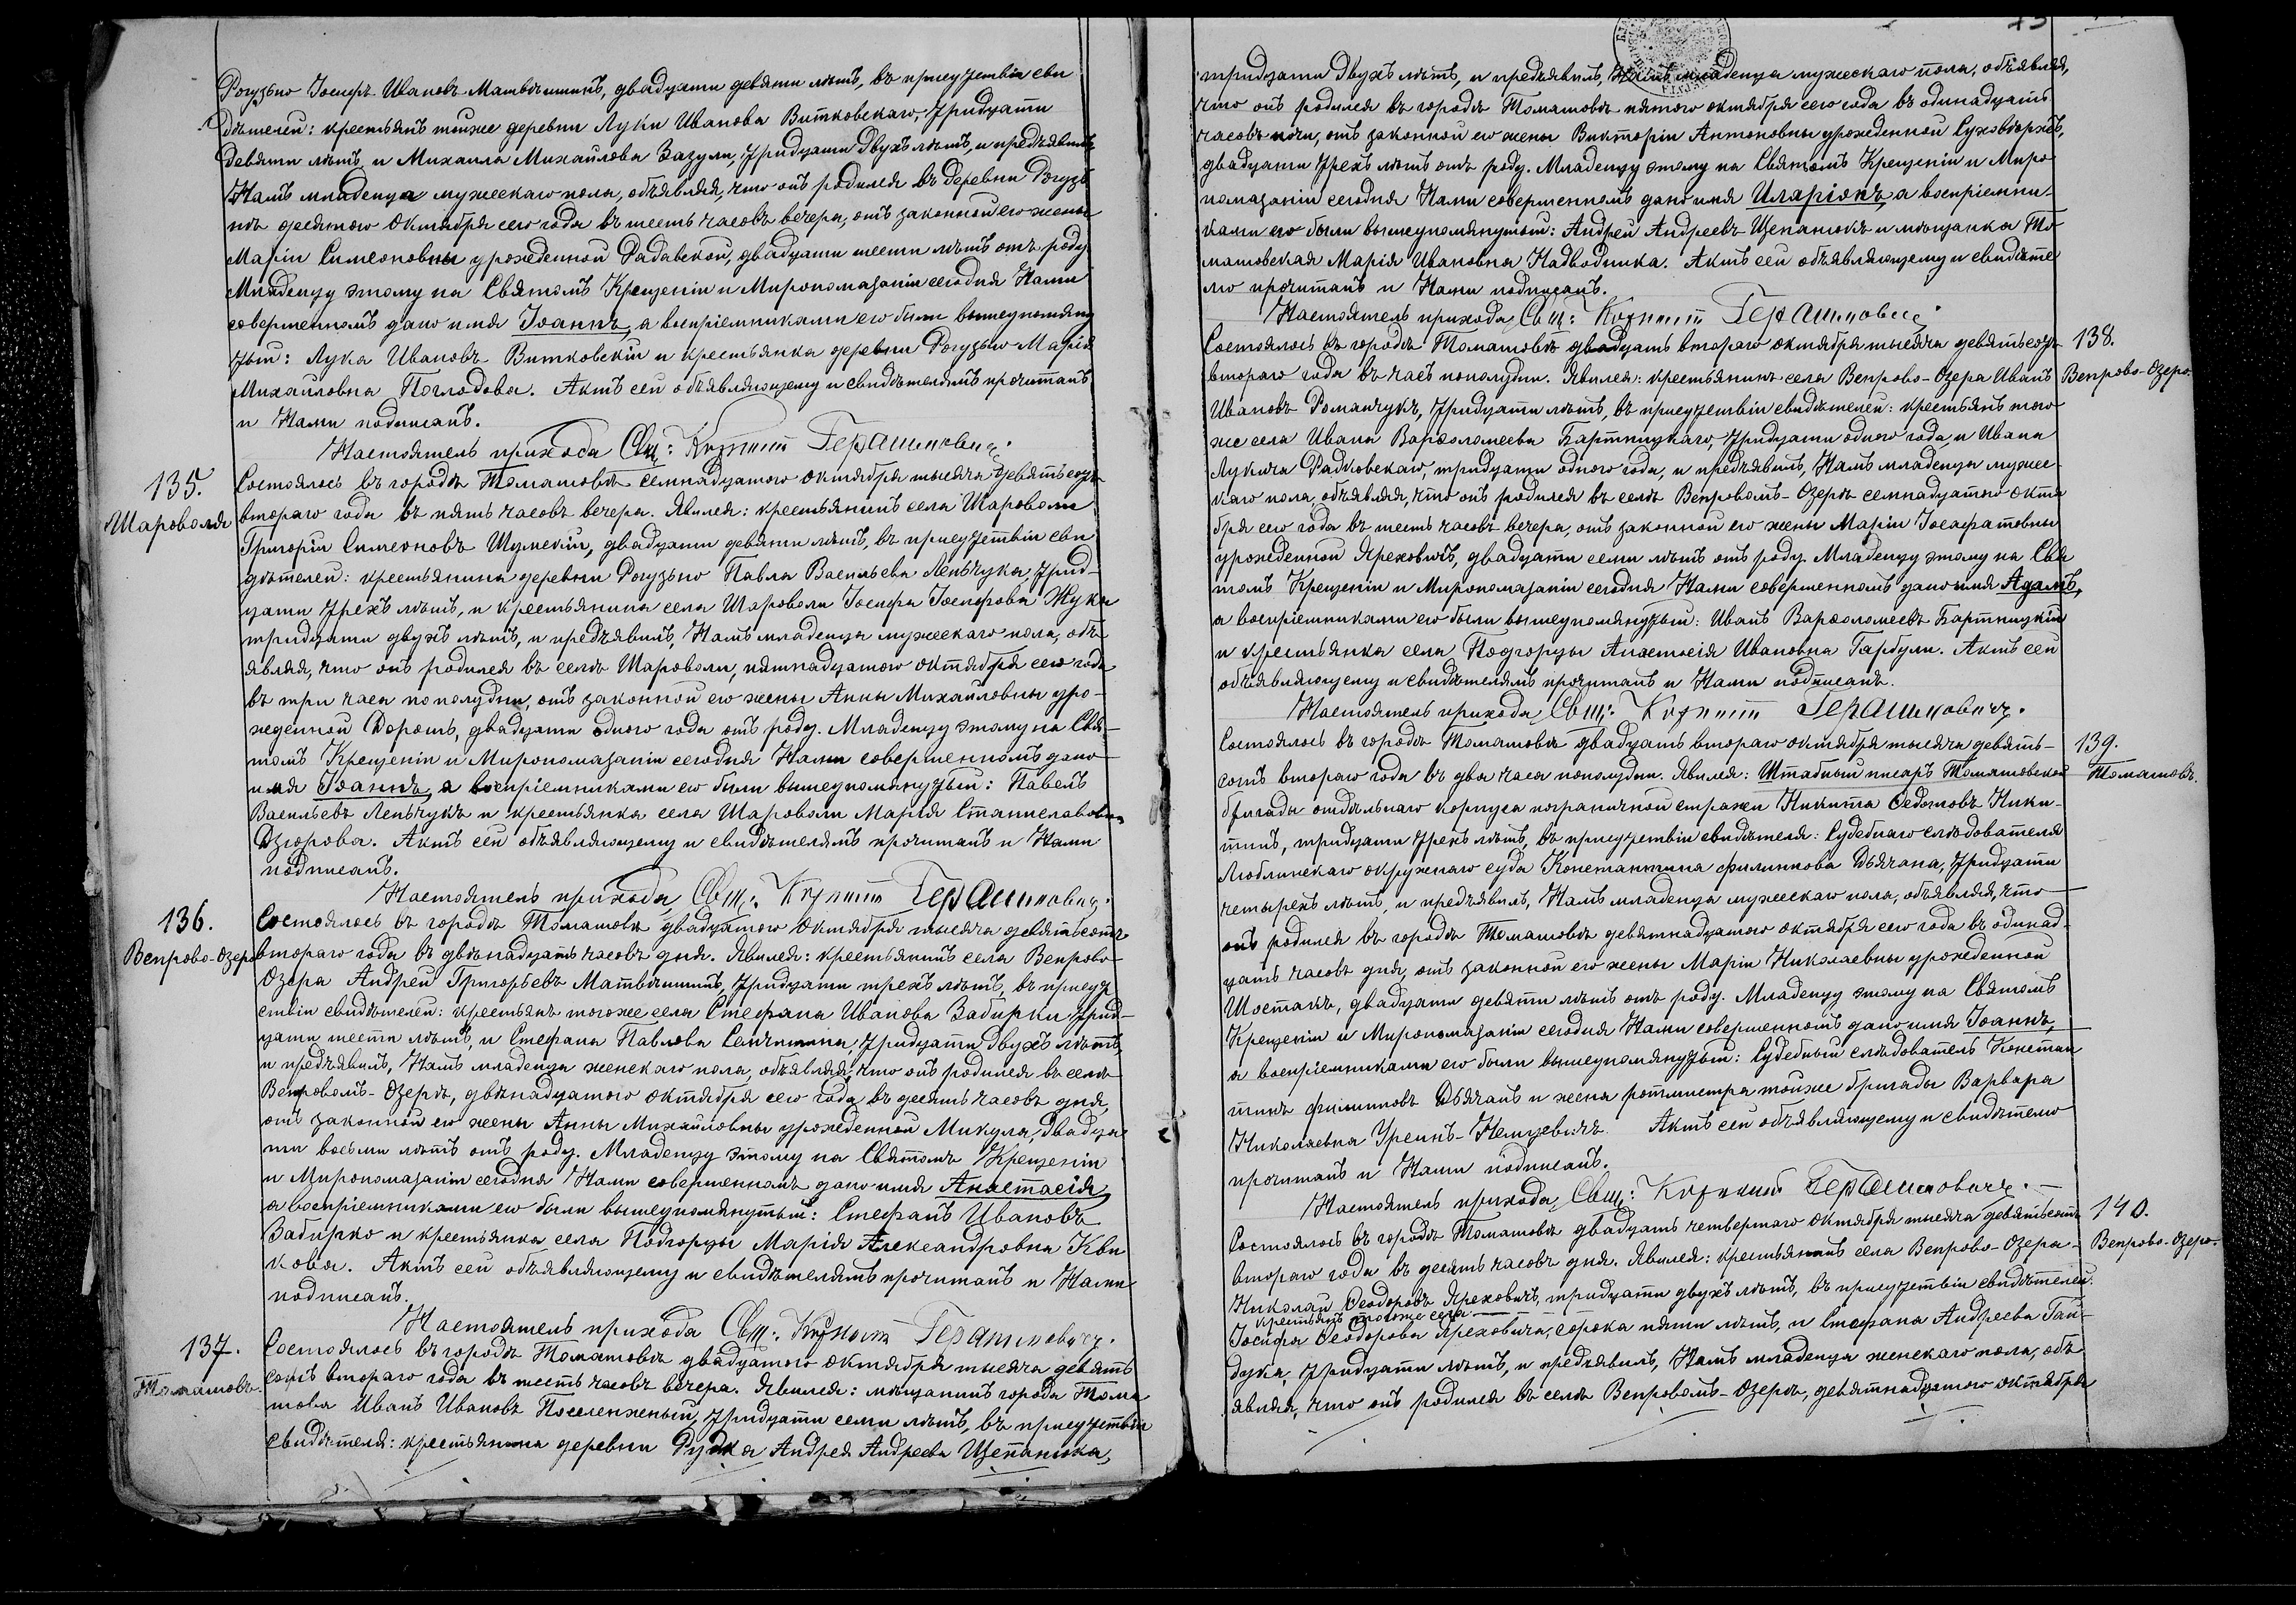 Рогузьно Іосифъ Ивановъ Матвѣишинъ, двадцати девяти лѣтъ, въ присутствіи сви
дѣтелей: крестьянъ тойже деревни Луки Иванова Витковскаго, тридцати
девяти лѣтъ, и Михаила Михайлова Зазули, тридцати двухъ лѣтъ, и предъявилъ
Намъ младенца мужескаго пола, объявляя, что онъ родился въ деревни Рогузь
нѣ десятого Октября сего года въ шесть часовъ вечера, отъ законной его жены
Маріи Симеоновны урожденной Радавской, двадцати шести лѣтъ отъ роду.
Младенцу этому на Святомъ Крещеніи и Миропомазаніи сегодня Нами
совершенномъ дано имя Іоаннъ, а воспріемниками его были вышеупомяну
тый: Лука Ивановъ Витковскій и крестьянка деревни Рогузьно Марія
Михайловна Поглодова. Актъ сей объявляющему и свидѣтелямъ прочитанъ
и Нами подписанъ.
Настоятель прихода Свщ: Герашимовичъ.
135.
Шароволя
Состоялось въ городѣ Томашовѣ семнадцатого октября тысяча девятьсотъ
второго года въ пять часовъ вечера. Явился: крестьянинъ села Шароволи
Григорій Симеоновъ Шумскій, двадцати девяти лѣтъ, въ присутствіи сви
дѣтелей: крестьянина деревни Рогузьно Павла Васильева Леньчука, трид-
цати трехъ лѣтъ, и крестьянина села Шароволи Іосифа Іосифова Жука
тридцати двухъ лѣтъ, и предъявилъ, Намъ младенца мужескаго пола, объ
являя, что онъ родился въ селѣ Шароволи, пятнадцатого октября сего года
въ три часа пополудни, отъ законной его жены Анны Михайловны уро-
жденной Дорошъ, двадцати одного года отъ роду. Младенцу этому на Свя-
томъ Крещеніи и Миропомазаніи сегодня Нами совершенномъ дано
имя Іоаннъ, а воспріемниками его были вышеупомянутый: Павелъ
Васильевъ Леньчукъ и крестьянка села Шароволи Марія Станиславовна
Дзюрова. Актъ сей объявляющему и свидѣтелямъ прочитанъ и Нами
подписанъ.
Настоятель прихода, Свщ: Герашимовичъ.
136.
Вепрово-Озеро
Состоялось въ городѣ Томашовѣ двадцатого Октября тысяча девятьсотъ
второго года въ двѣнадцать часовъ дня. Явился: крестьянинъ села Вепрово-
Озера Андрей Григорьевъ Матвѣишинъ, тридцати трехъ лѣтъ, въ присут
ствіи свидѣтелей: крестьянъ тогоже села Стефана Иванова Забирки трид-
цати шести лѣтъ, и Стефана Павлова Сенчишина, тридцати двухъ лѣтъ,
и предъявилъ, Намъ младенца женскаго пола, объявляя, что онъ родился въ селѣ
Вепровомъ-Озерѣ, двѣнадцатого октября сего года въ десять часовъ дня,
отъ законной его жены Анны Михайловны урожденной Микула, двадца
ти восьми лѣтъ отъ роду. Младенцу этому на Святомъ Крещеніи
и Миропомазаніи сегодня Нами совершенномъ дано имя Анастасія,
а воспріемниками его были вышеупомянутый: Стефанъ Ивановъ
Забирко и крестьянка села Подгорцы Марія Александровна Кви
кова. Актъ сей объявляющему и свидѣтелямъ прочитанъ и Нами
подписанъ.
Настоятель прихода Свщ: Герашимовичъ.
137.
Томашовъ.
Состоялось въ городѣ Томашовѣ двадцатого октября тысяча девять
сотъ второго года въ шесть часовъ вечера. Явился: мѣщанинъ города Тома
шова Иванъ Ивановъ Поселенженый, тридцати семи лѣтъ, въ присутствіи
свидѣтеля: крестьянина деревни Рудка Андрея Андреева Щепанюка,
тридцати двухъ лѣтъ, и предъявилъ, Намъ младенца мужескаго пола, объявляя,
что онъ родился въ городѣ Томашовѣ пятого октября сего года въ одинадцать
часовъ ночи, отъ законной его жены Викторіи Антоновны урожденной Суховѣржъ,
двадцати трехъ лѣтъ отъ роду. Младенцу этому на Святомъ Крещеніи и Миро
помазаніи сегодня Нами совершенномъ дано имя Иларіонъ, а воспріемни-
ками его были вышеупомянутый: Андрей Андреевъ Щепанюкъ и мѣщанка То-
машовская Марія Ивановна Надводника. Актъ сей объявляющему и свидѣте
лю прочитанъ и Нами подписанъ.
Настоятель прихода, Свщ: Герашимовичъ.
138.
Вепрово-Озеро.
Состоялось въ городѣ Томашовѣ двадцать второго октября тысяча девятьсотъ
второго года въ часъ пополудни. Явился: крестьянинъ села Вепрово-Озера Иванъ
Ивановъ Романчукъ, тридцати лѣтъ, въ присутствіи свидѣтелей: крестьянъ того
же села Ивана Варѳоломеева Бартницкаго, тридцати одного года, и Ивана
Лукича Радковскаго, тридцати одного года, и предъявилъ, Намъ младенца мужес-
каго пола, объявляя, что онъ родился въ селѣ Вепровомъ-Озерѣ семнадцатого октя
бря сего года въ шесть часовъ вечера, отъ законной его жены Маріи Іосафатовны
урожденной Яреховичъ, двадцати семи лѣтъ отъ роду. Младенцу этому на Свя
томъ Крещеніи и Миропомазаніи сегодня Нами совершенномъ дано имя Адамъ,
а воспріемниками его были вышеупомянутый: Иванъ Варѳоломеевъ Бартницкій
и крестьянка села Подгорцы Анастасія Ивановна Гарбули. Актъ сей
объявляющему и свидѣтелямъ прочитанъ и Нами подписанъ.
Настоятель прихода, Свщ: Герашимовичъ.
139.
Томашовъ.
Состоялось въ городѣ Томашовѣ двадцать второго октября тысяча девять-
сотъ второго года въ два часа пополудни. Явился: Штабный писаръ Томашовской
бригады отдѣльнаго корпуса пограничной стражи Никита Ѳедотовъ Ники-
тинъ, тридцати трехъ лѣтъ, въ присутствіи свидѣтеля: Судебнаго слѣдователя
Люблинскаго окружнаго суда Константина Филиппова Дьячана, тридцати
четырехъ лѣтъ, и предъявилъ, Намъ младенца мужескаго пола, объявляя, что
онъ родился въ городѣ Томашовѣ девятнадцатого октября сего года въ одинад-
цать часовъ дня, отъ законной его жены Маріи Николаевны урожденной
Шостакъ, двадцати девяти лѣтъ отъ роду. Младенцу этому на Святомъ
Крещеніи и Миропомазаніи сегодня Нами совершенномъ дано имя Іоаннъ,
а воспріемниками его были вышеупомянутый: Судебный слѣдователь Констан
тинъ Филипповъ Дьячанъ и жена ротмистра тойже бригады Варвара
Николаевна Урсинъ-Немцевичъ. Актъ сей объявляющему и свидѣтелю
прочитанъ и Нами подписанъ.
Настоятель прихода, Свщ: Герашимовичъ.
140.
Вепрово-Озеро.
Состоялось въ городѣ Томашовѣ двадцать четвертого октября тысяча девятьсотъ
второго года въ десять часовъ дня. Явился: крестьянинъ села Вепрово-Озера
Николай Ѳеодоровъ Яреховичъ, тридцати двухъ лѣтъ, въ присутствіи свидѣтелей:
крестьянъ тогоже села
Іосифа Ѳеодорова Яреховича, сорока пяти лѣтъ, и Стефана Андреева Гай-
дука, тридцати лѣтъ, и предъявилъ, Намъ младенца женскаго пола, объ
являя, что онъ родился въ селѣ Вепровомъ-Озерѣ, девятнадцатого октября